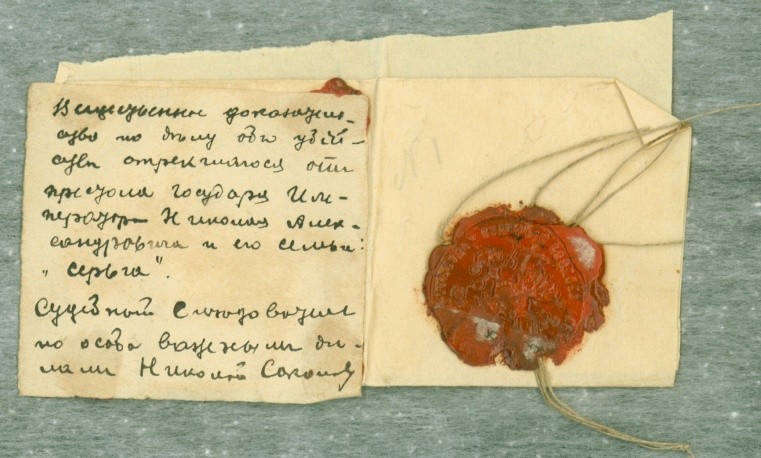 Вещественное доказатель-
ство по дѣлу объ убій-
ствѣ отрекшагося отъ
престола Государя Им-
ператора Николая Алек-
сандровича и его семьи:
„серьга".
Судебный Слѣдователь
по особо важнымъ дѣ-
ламъ Николай Соколовъ